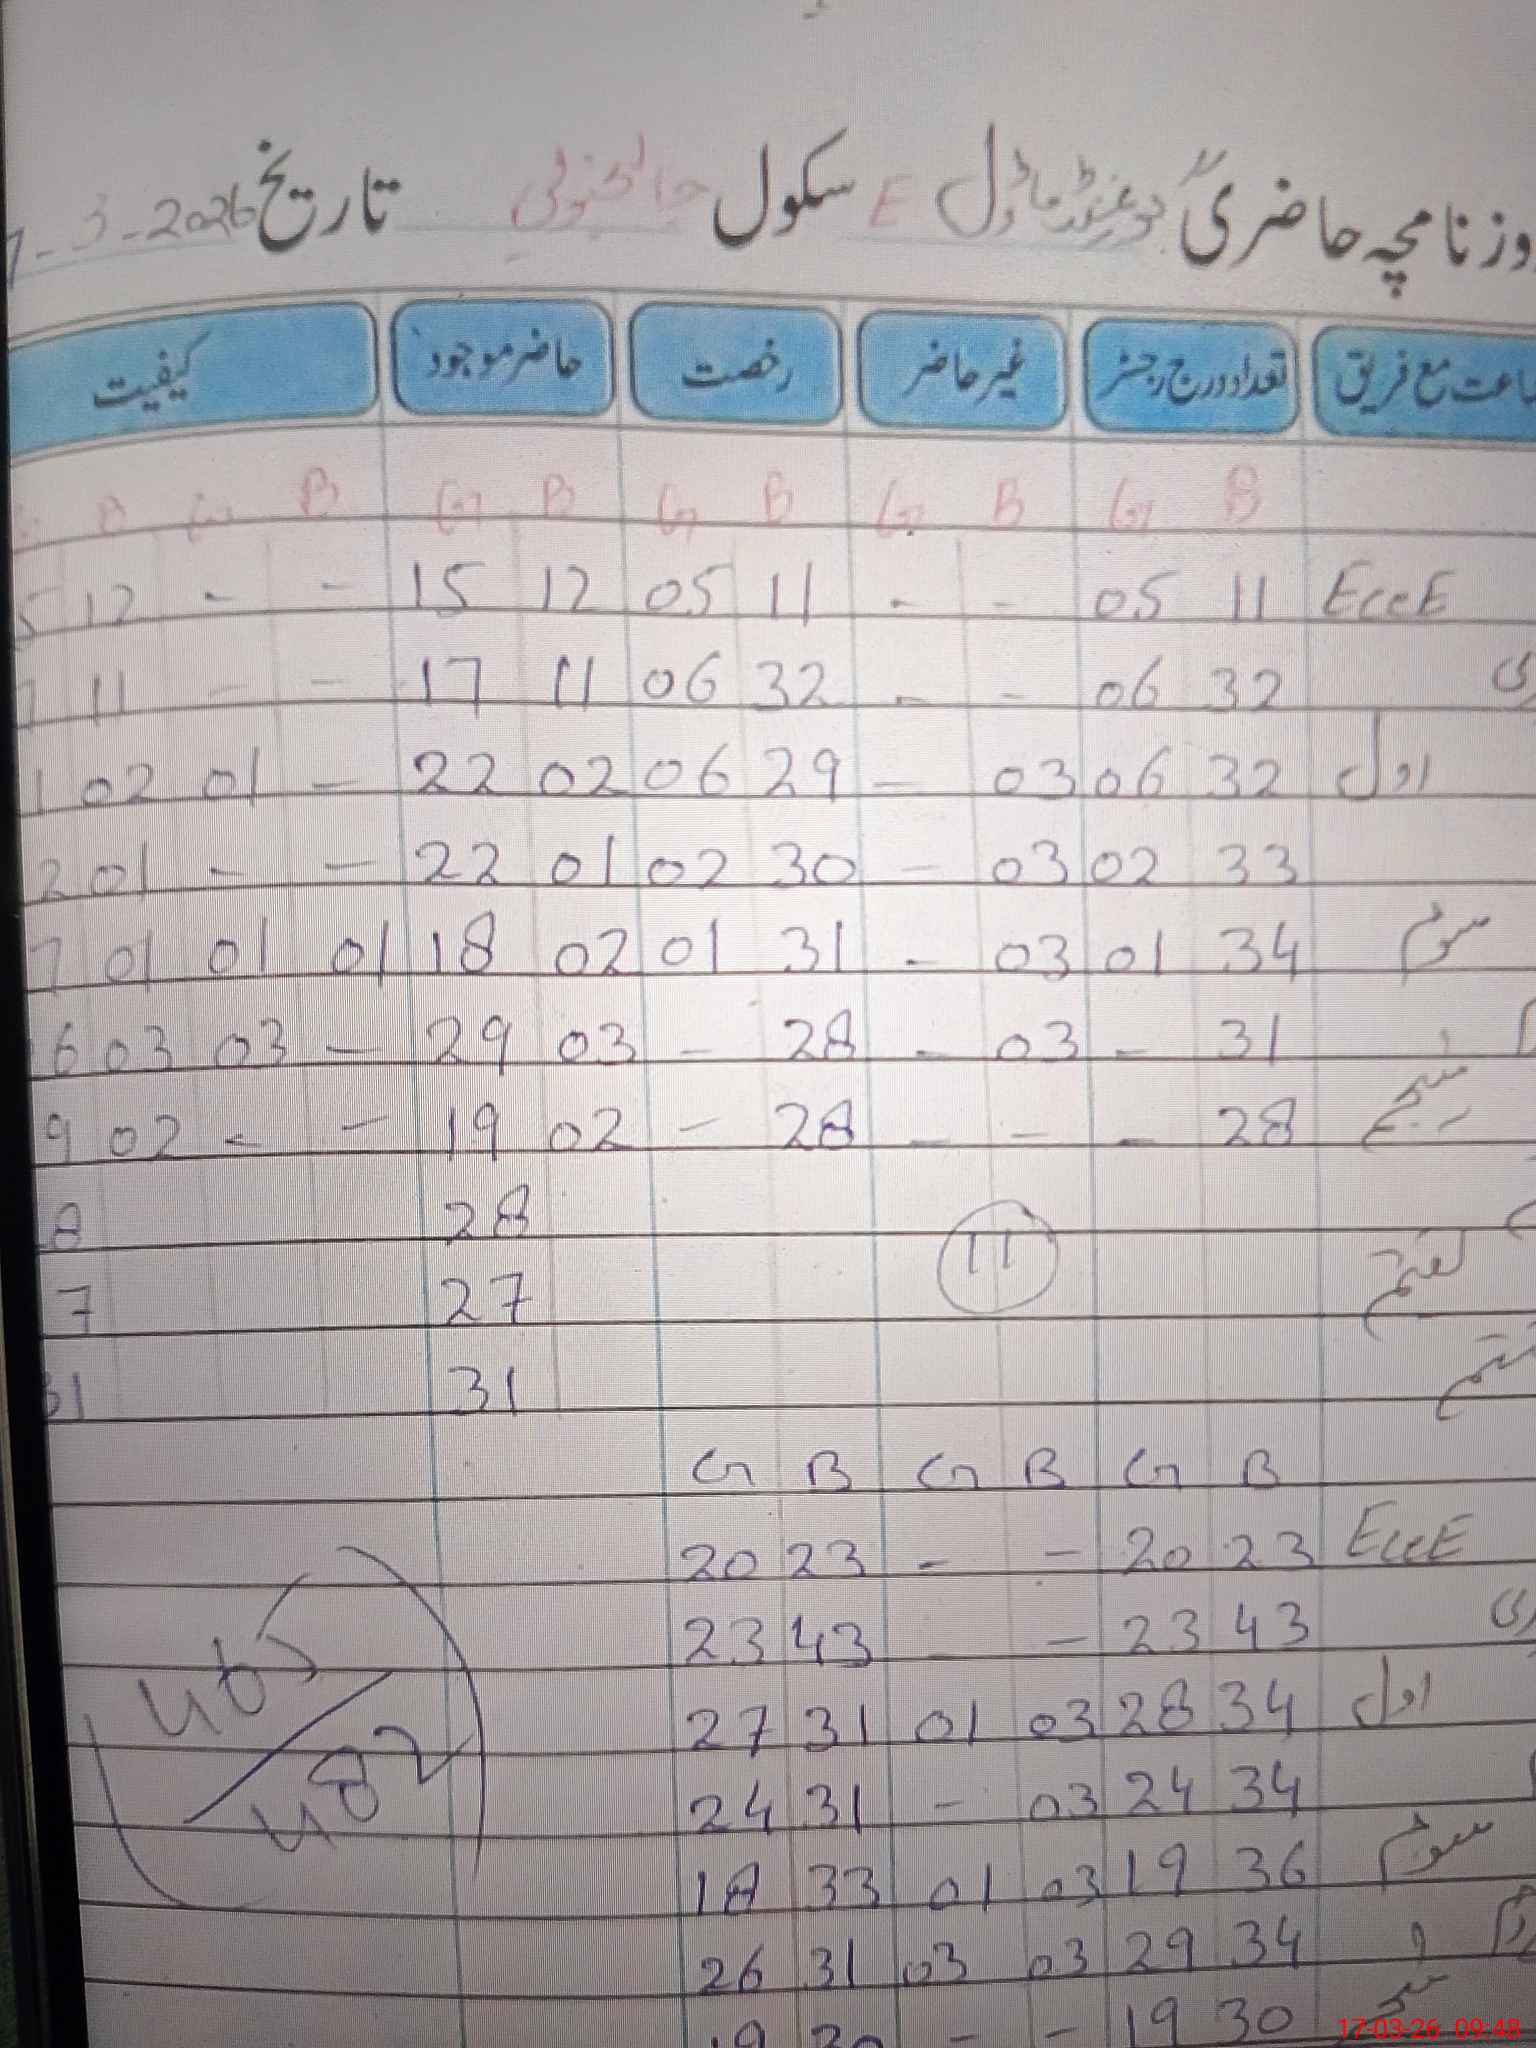 روزنامچہ حاضری گورنمنٹ ماڈل E سکول تاریخ 7-3-2026
جماعت مع فریق تعداد درج رجسٹر غیر حاضر رخصت حاضر موجود کیفیت
B G B G B G B G B G B
EccE 11 05 - - 11 05 12 15 - - 12 5
32 06 - - 32 06 11 17 - - 11
اول 32 06 03 - 29 06 02 22 - 01 02 1
33 02 03 - 30 02 01 22 - - 01 2
سوم 34 01 03 - 31 01 02 18 01 01 01 7
31 - 03 - 28 - 03 29 - 03 03 6
پنجم 28 - - - 28 - 02 19 - - 02 9
28 8
ہفتم 11 27 7
ہشتم 31 31
B G B G B G
EccE 23 20 - - 23 20
43 23 - 43 23
اول 34 28 03 01 31 27
34 24 03 - 31 24
سوم 36 19 03 01 33 18
34 29 03 03 31 26
30 19 - - 30 19
465
482
17-03-26 09:48